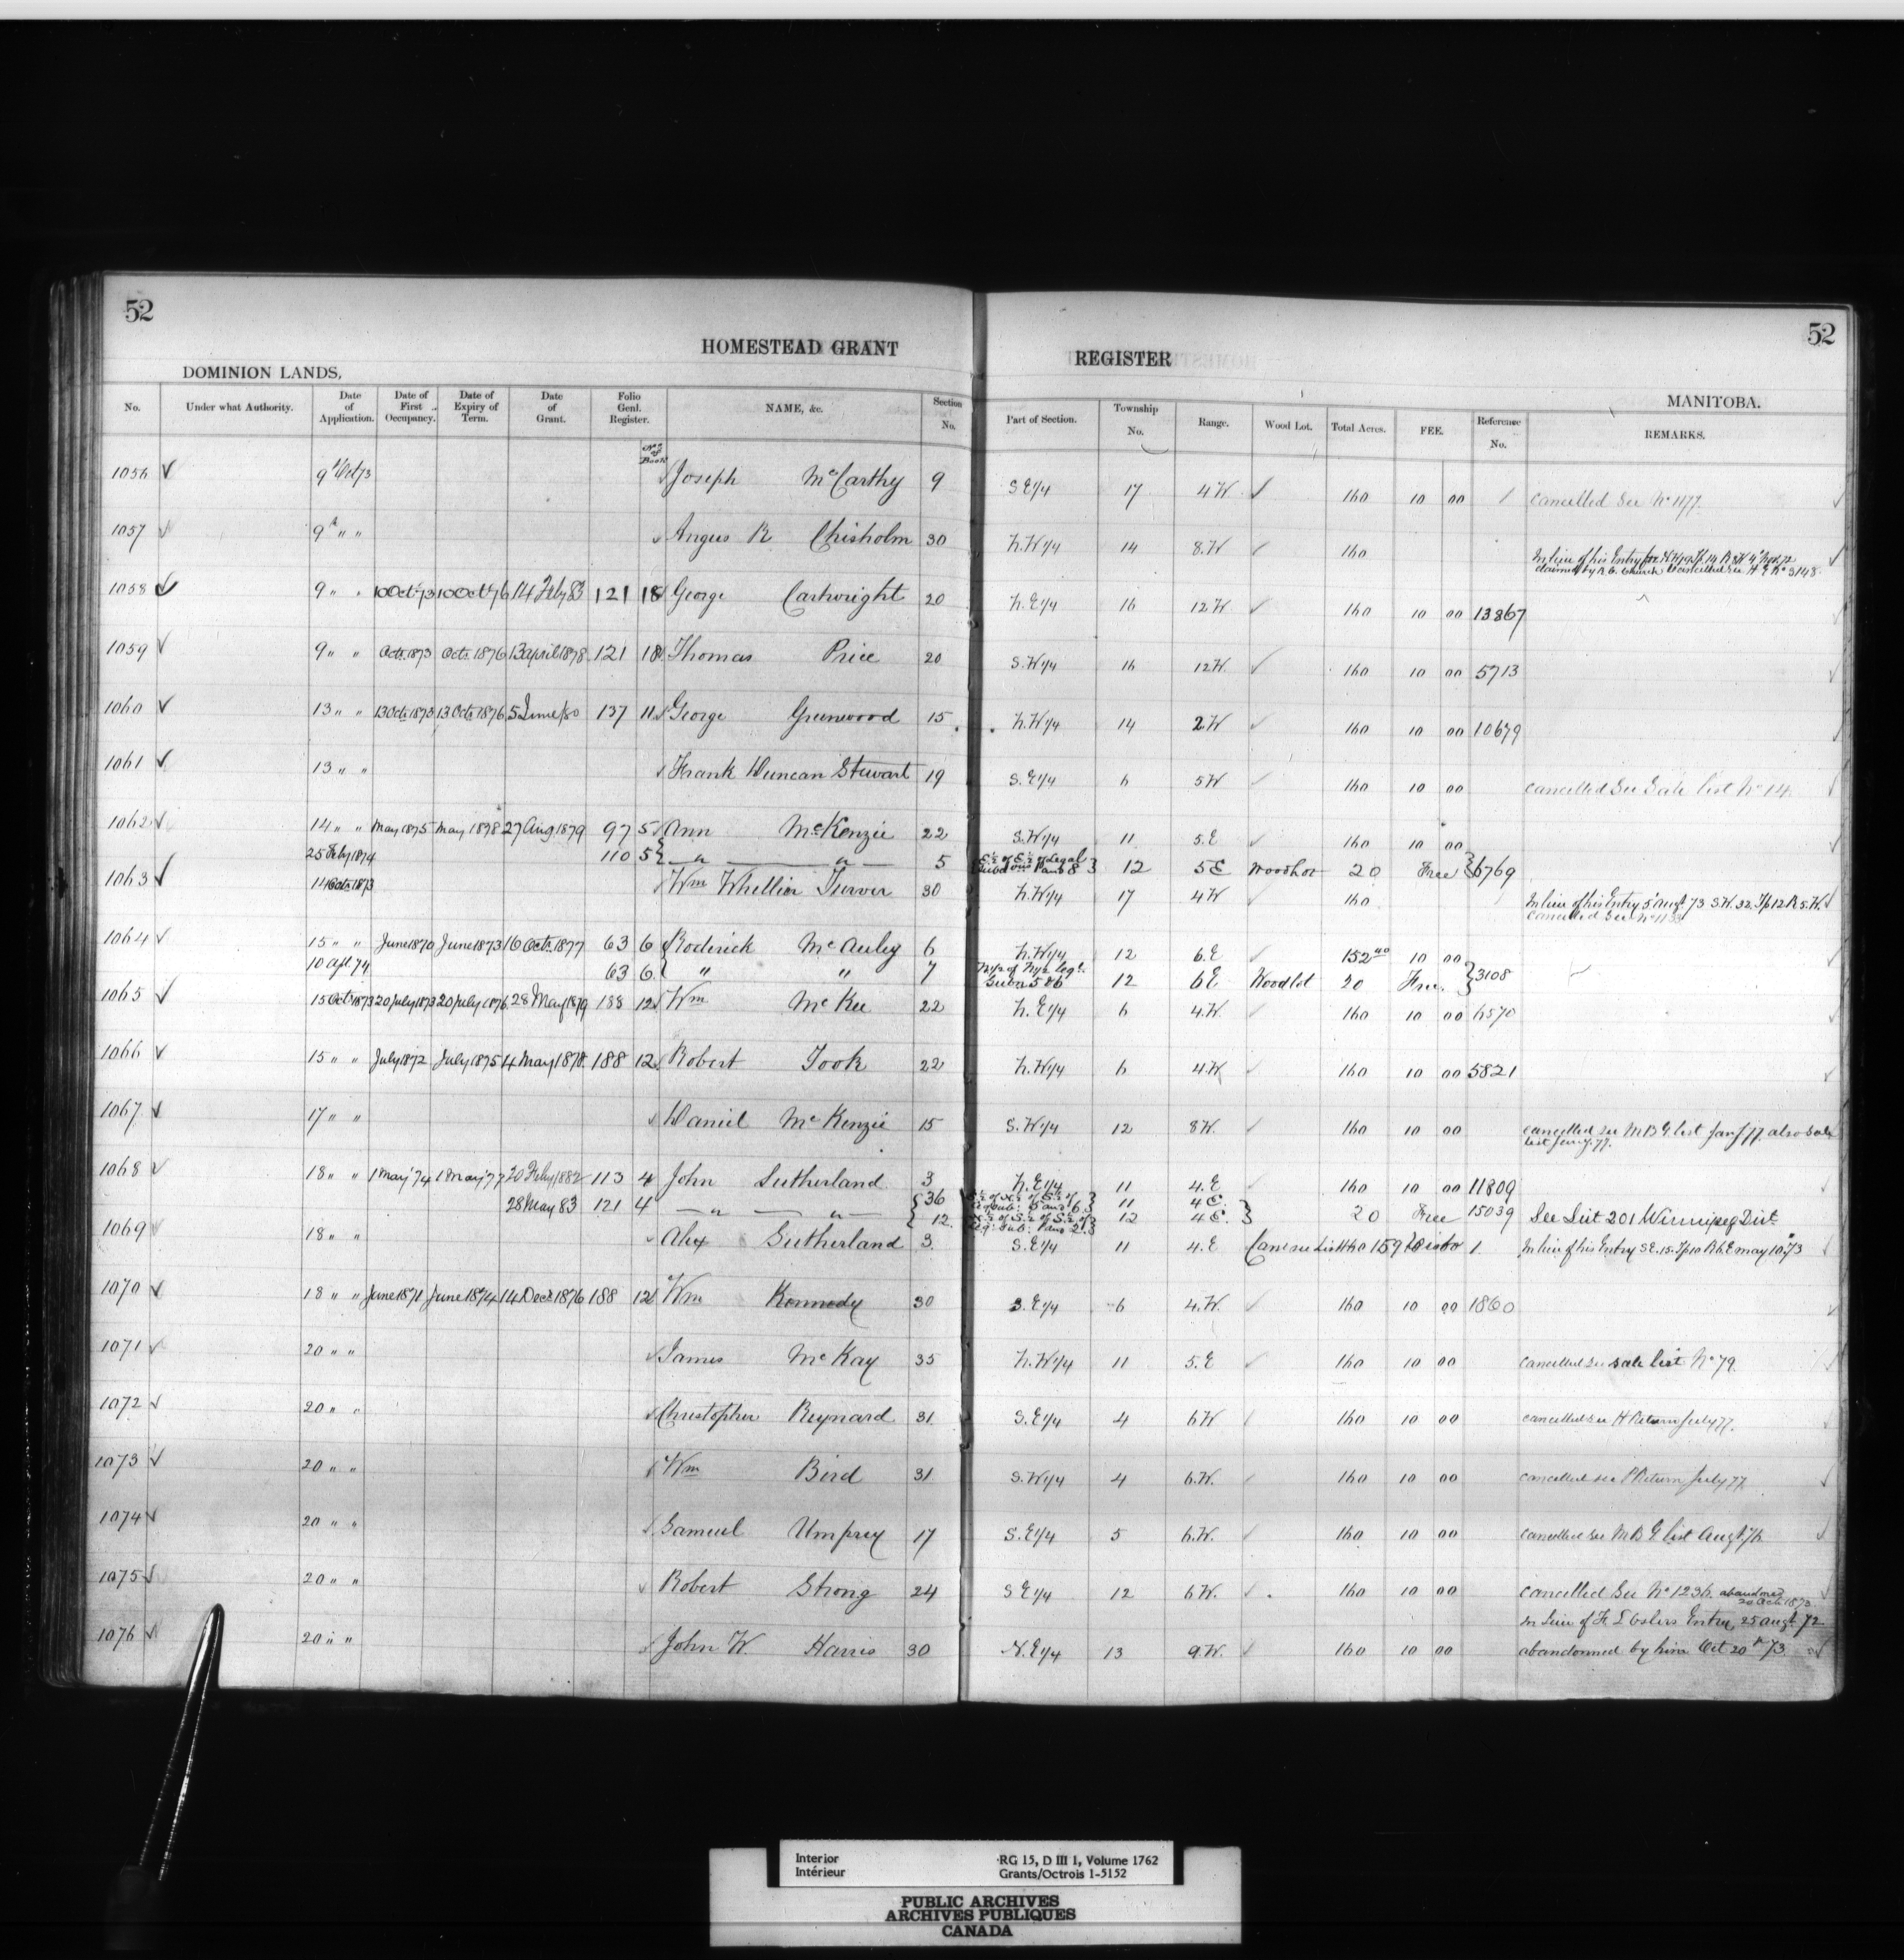 52
52
HOMESTEAD GRANT REGISTER
DOMINION LANDS,
MANITOBA.
No. Under what Authority. Date of Application. Date of First Occupancy. Date of Expiry of Term. Date of Grant. Folio Genl. Register. NAME, &c. Section No. Part of Section. Township No. Range. Wood Lot. Total Acres. FEE. Reference No. REMARKS.
No of Book
1056 9th Oct 73 Joseph McCarthy 9 S E 1/4 17 4 W 160 10 00 cancelled See No 1177.
1057 9th " " Angus R Chisholm 30 N.W 1/4 14 8.W 160 In lieu of his Entry for
claimed by R.C. Church Cancelled see H G No 3148
1058 9 " " 10 Oct 73 10 Oct 76 14 Feby 83 121 18 George Cartwright 20 N.E 1/4 16 12 W 160 10 00 13867
1059 9 " " Octr 1873 Octr 1876 13 april 1878 121 18 Thomas Price 20 S.W 1/4 16 12 W. 160 10 00 5713
1060 13 " " 13 Octr 1873 13 Octr 1876 5 June/80 137 11 George Greenwood 15 N.W 1/4 14 2 W 160 10 00 10679
1061 13 " " Frank Duncan Stewart 19 S.E 1/4 6 5 W 160 10 00 cancelled See Sale list No 14.
1062 14 " " May 1875 May 1878 27 Aug 1879 97 5 Ann McKenzie 22 S.W 1/4 11 5.E 160 10 00
25 Feby 1874 110 5 " " 5 E 1/2 of E 1/2 of Legal Subdons 1 and 8 12 5 E Woodlot 20 Free 6769
1063 14 Octr 1873 Wm Whellier Turver 30 N.W 1/4 17 4 W 160 In lieu of his Entry 5 Augt 73 S.W. 32. Tp 12 R 5.W.
cancelled See No
1064 15 " " June 1870 June 1873 16 Octr 1877 63 6 Roderick McAuley 6 N.W 1/4 12 6.E 152 40 10 00
10 Apl. 74 63 6 " " 7 N 1/2 of N 1/2 leg. Subs 5 & 6 12 6 E Woodlot 20 Free. 3108
1065 15 Octr 1873 20 July 1873 20 July 1876 28 May 1879 188 12 Wm McKee 22 N.E 1/4 6 4.W. 160 10 00 6570
1066 15 " " July 1872 July 1875 4 May 1878 188 12 Robert Took 22 N.W 1/4 6 4.W 160 10 00 5821
1067 17 " " Daniel McKenzie 15 S.W 1/4 12 8 W. 160 10 00 cancelled see M B G list Jany 77 also sale
list Jany. 77.
1068 18 " " 1 May '74 1 May '77 20 Feby 1882 113 4 John Sutherland 3 N.E 1/4 11 4.E 160 10 00 11809
28 May 83 121 4 " " 36 11 4 E.
12 12 4 E. 20 Free 15039 See List 201 Winnipeg Dist.
1069 18 " " Alex Sutherland 3. S.E 1/4 11 4.E 1. In lieu of his Entry S E. 15. Tp 10 R 6.E may 10th, 73
1070 18 " " June 1871 June 1874 14 Decr 1876 188 12 Wm Kennedy 30 S.E 1/4 6 4.W. 160 10 00 1860
1071 20 " " James McKay 35 N.W 1/4 11 5.E 160 10 00 cancelled see sale list No 79.
1072 20 " " Christopher Reynard 31. S.E 1/4 4 6 W 160 10 00 cancelled see H Return July 77.
1073 20 " " Wm Bird 31 S.W 1/4 4 6.W. 160 10 00 cancelled see P Return July 77.
1074 20 " " Samuel Umprey 17 S.E 1/4 5 6.W. 160 10 00 cancelled see M B G list Augt 76
1075 20 " " Robert Strong 24 S E 1/4 12 6 W. 160 10 00 cancelled See No 1236. abandoned
20 Octr 1873.
In lieu of Entry 25 augt 72
1076 20 " " John W. Harris 30 N.E 1/4 13 9.W. 160 10 00 abandonned by him Oct 20th 73
Interior
Intérieur
RG 15, D III 1, Volume 1762
Grants/Octrois 1-5152
PUBLIC ARCHIVES
ARCHIVES PUBLIQUES
CANADA